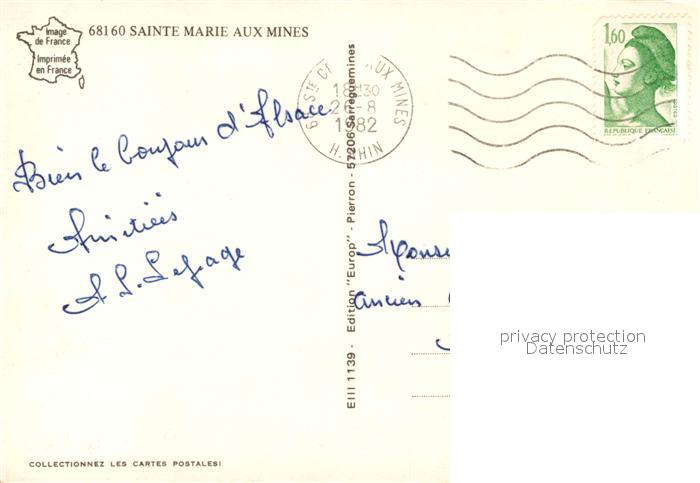 Image
de France
Imprimée
en France
68160 SAINTE MARIE AUX MINES
Bien le bonjour d'Alsace
Amitiés
A. L. Lepage
STE AUX MINES
18H30
26-8
1982
H. RHIN
1,60
REPUBLIQUE FRANÇAISE
EIII 1139 - Edition "Europ" - Pierron - 57206 Sarreguemines
Monsi
ancien
privacy protection
Datenschutz
COLLECTIONNEZ LES CARTES POSTALES!